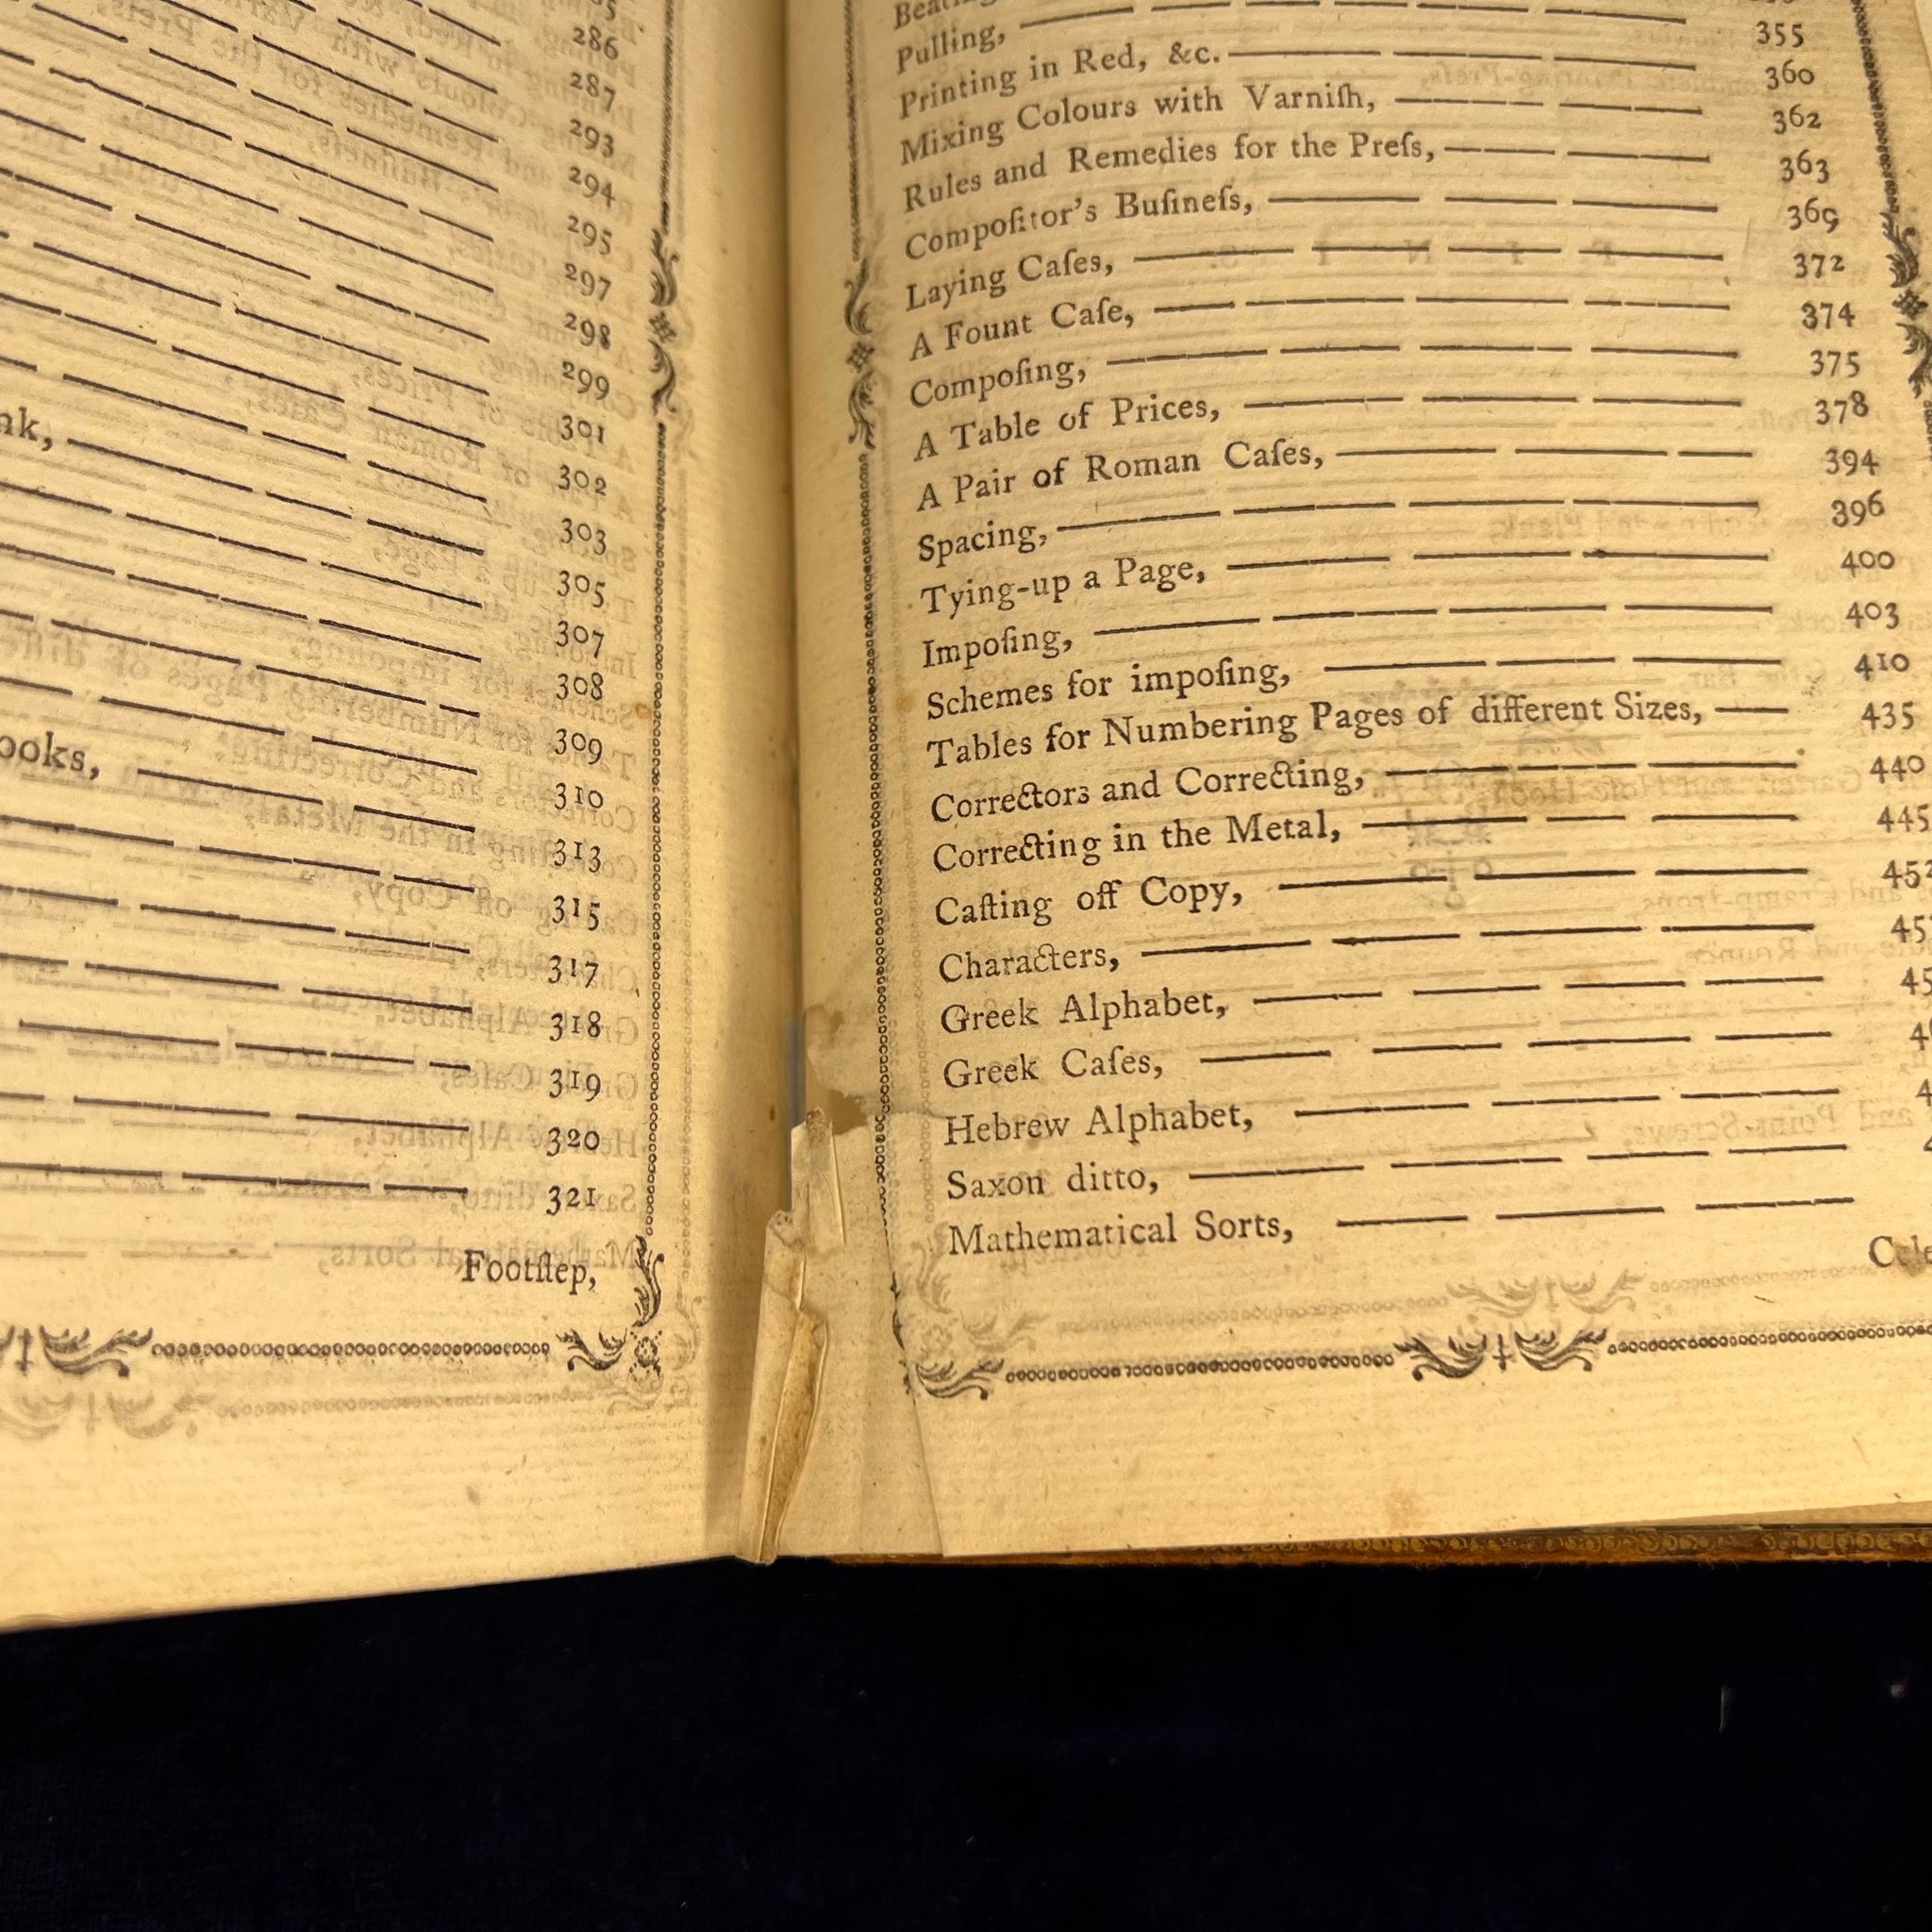 286
287
293
294
295
297
298
299
301
302
303
305
307
308
309
310
313
315
317
318
319
320
321
Footſtep,
Pulling, — — — — 355
Printing in Red, &c. — — — 360
Mixing Colours with Varniſh, — — 362
Rules and Remedies for the Preſs, — — 363
Compoſitor's Buſineſs, — — — 369
Laying Caſes, — — — — 372
A Fount Caſe, — — — — 374
Compoſing, — — — — 375
A Table of Prices, — — — — 378
A Pair of Roman Caſes, — — — 394
Spacing, — — — — 396
Tying-up a Page, — — — 400
Impoſing, — — — — 403
Schemes for impoſing, — — — 410
Tables for Numbering Pages of different Sizes, — 435
Correctors and Correcting, — — — 440
Correcting in the Metal, — — — 445
Caſting off Copy, — — —
Characters, — — — —
Greek Alphabet, — — — —
Greek Caſes, — — — —
Hebrew Alphabet, — — —
Saxon ditto, — — — —
Mathematical Sorts, — — —